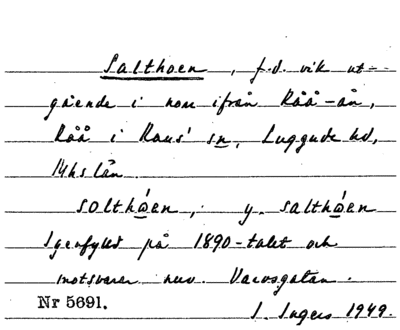 Salthoen, f.d. vik ut-
gående i norr ifrån Råå-ån,
Råå i Raus' sn, Luggude hd,
Mhs län.
solthǿen, y. salthǿen
Igenfylld på 1890-talet och
motsvarar nuv. Varvsgatan.
Nr 5691.
I. Ingers 1949.